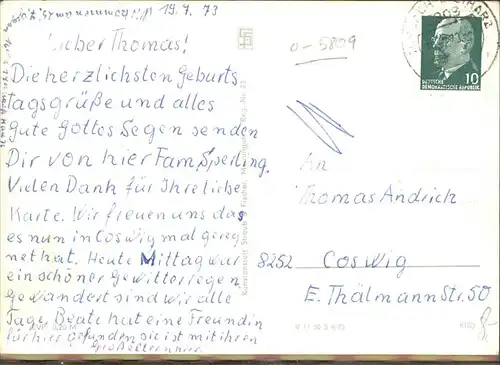 19.7.73
Lieber Thomas!
Die herzlichsten Geburts
tagsgrüße und alles
gute Gottes Segen senden
Dir von hier Fam. Sperling.
Vielen Dank für Ihre liebe
Karte. Wir freuen uns das
es nun in Coswig mal gereg
net hat. Heute Mittag war
ein schöner Gewitterregen.
Gewandert sind wir alle
Tage. Beate hat eine Freundin
für hier gefunden sie ist mit ihren
Großeltern hier.
0-5809
10
DEUTSCHE
DEMOKRATISCHE REPUBLIK
An
Thomas Andrich
8252 Coswig
E. Thälmann Str. 50
Straub & Fischer, Meiningen